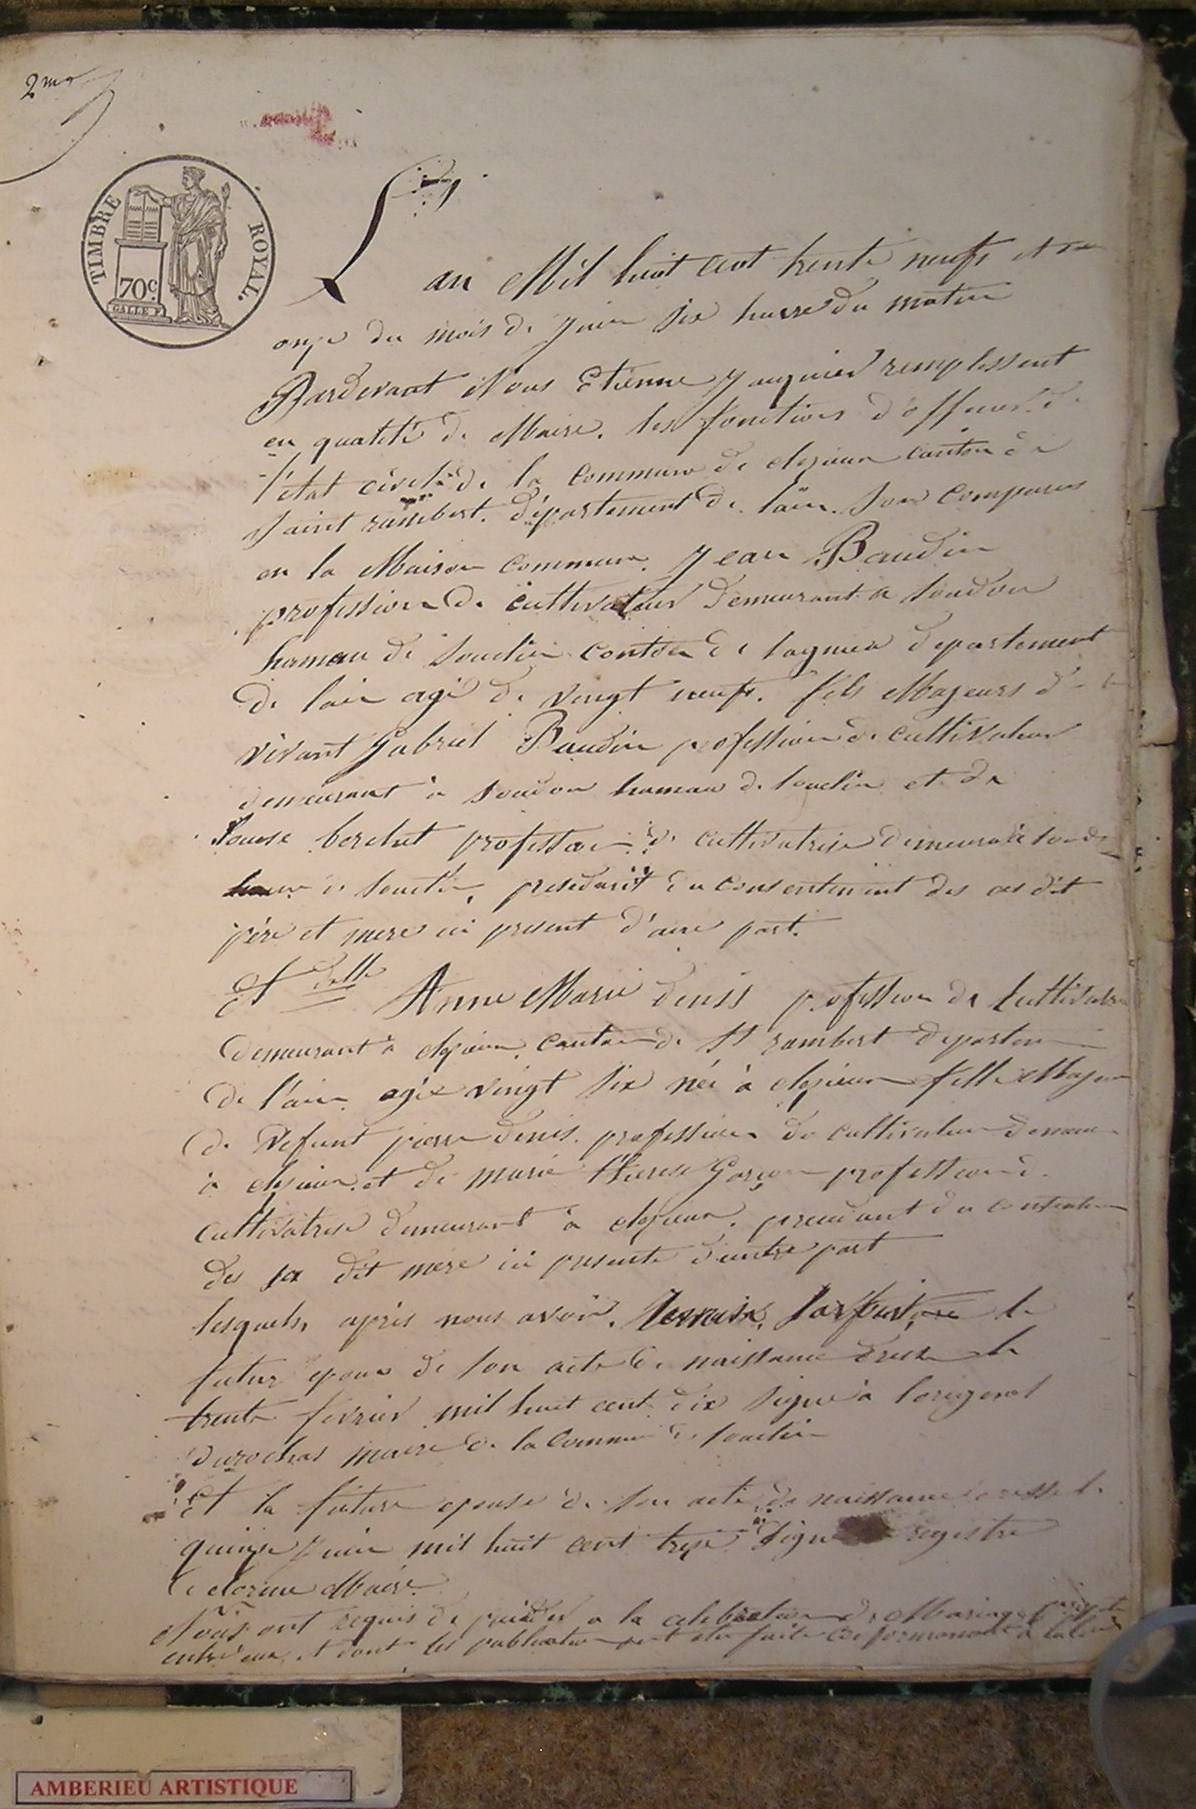 2me
TIMBRE ROYAL.
70c
GALLE F.
L
an Mil huit cent trente neufs et le
onze du mois de juin six heures du matin
Pardevant Nous Etienne Janguier remplissent
en qualité de Maire. les fonctions d'officier de
l'état civil de la commune de clezieux canton de
saint rambert. département de l'ain. Son comparus
en la Maison commune. Jean Baudin
profession de cultivateur demeurant a soudon
hamau de souclin canton de lagnieu departement
de lain agé de vingt neufs. fils Majeurs d
vivant Gabriel Baudin profession de cultivateur
demeurant à soudon hamau de souclin et de
Louise berchet profession de cultivatrise demeurant à
de souclin, du consentement des ces dit
père et mere ici présent d'une part.
Et delle Anne Marie denis profession de Cultivatrise
demeurant à clezieux. canton de St rambert departem
de l'ain. agée vingt six née à clezieux fille Majeure
de defunt pierre denis. profession de cultivateur
à clezieux. et de marie thérèse profession de
cultivatrise demeurant à clezieux. du
des sa dit mère ici présente d'autre part
lesquels, apres nous avoir. le
futur epoux de son acte de naissance le
trente février mil huit cent dix signé à l'original
durochas maire de la commune de souclin
Et la future epouse de son acte de naissance le
quinze juin mil huit cent treze signé registre
Maire.
Nous ont requis de à la celebration de Mariage
entre eux, et dont les publication ont étés faite
AMBERIEU ARTISTIQUE